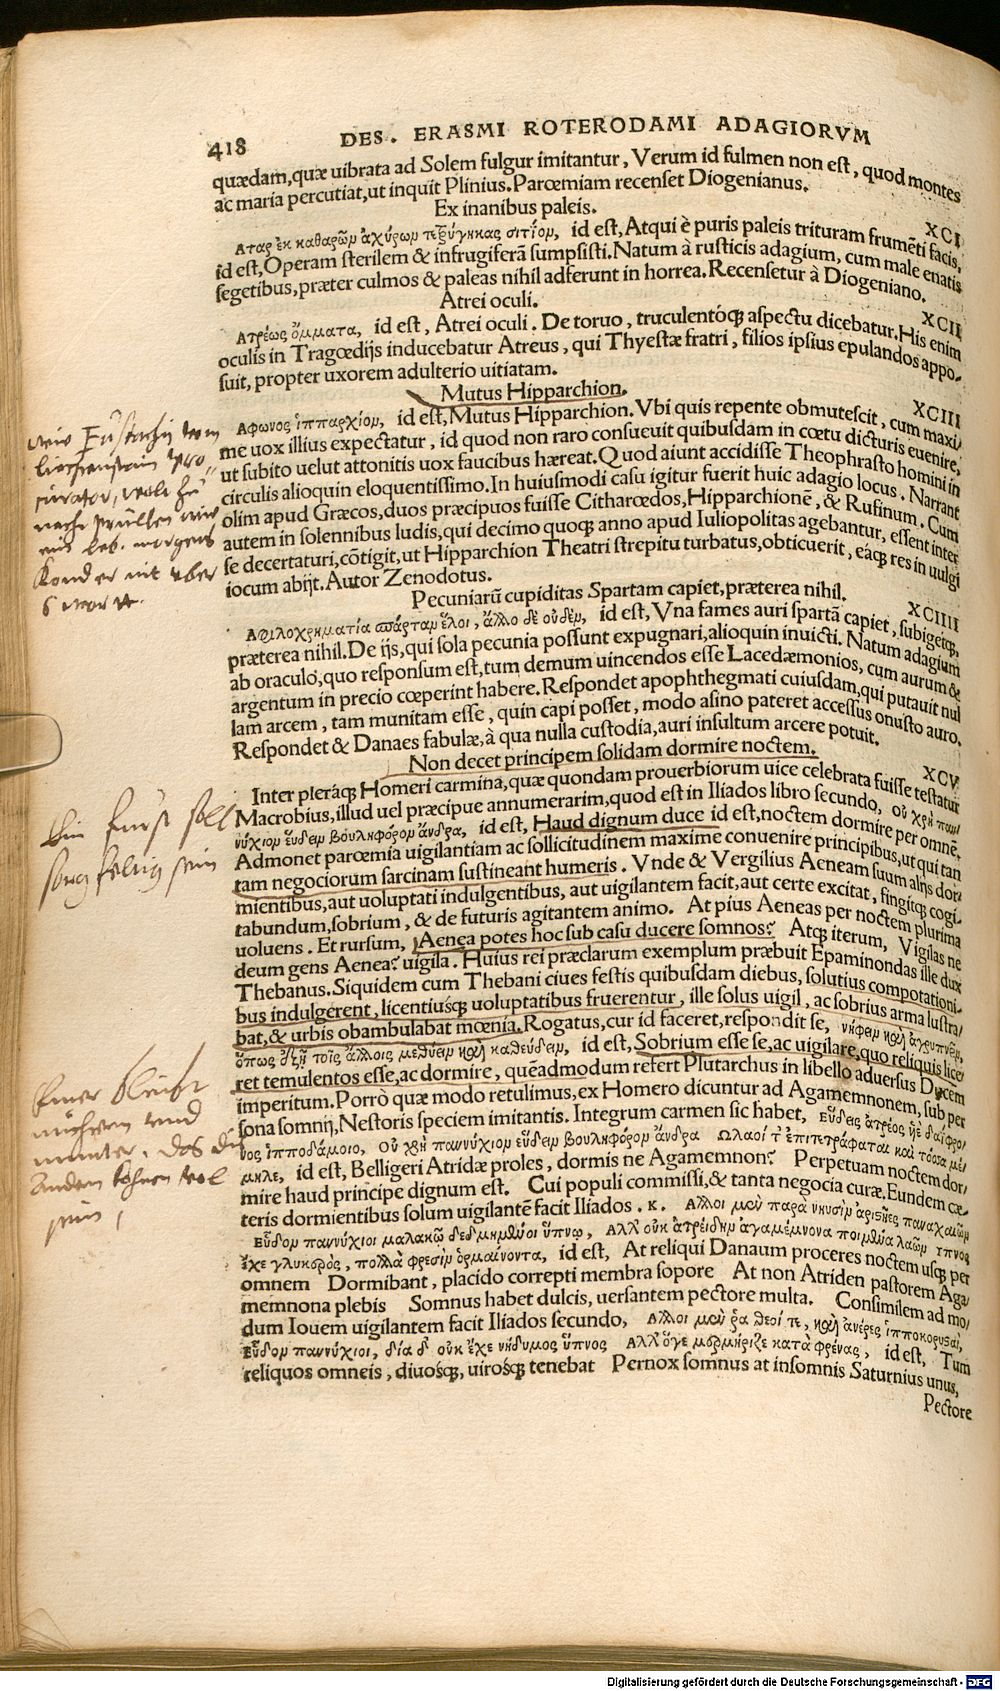 418 DES. ERASMI ROTERODAMI ADAGIORVM
quædam,quæ uibrata ad Solem fulgur imitantur, Verum id fulmen non est, quod montes
ac maria percutiat,ut inquit Plinius.Parœmiam recenset Diogenianus.
Ex inanibus paleis. XCI
Αταρ ἐκ καθαρῶν ἀχύρων τετρύγηκας σιτίον, id est,Atqui è puris paleis trituram frumẽti facis,
id est,Operam sterilem & infrugiferã sumpsisti.Natum à rusticis adagium, cum male enatis
segetibus,præter culmos & paleas nihil adferunt in horrea.Recensetur à Diogeniano.
Atrei oculi. XCII
Ατρέως ὄμματα, id est, Atrei oculi. De toruo, truculentóq; aspectu dicebatur.His enim
oculis in Tragœdijs inducebatur Atreus, qui Thyestæ fratri, filios ipsius epulandos appo-
suit, propter uxorem adulterio uitiatam.
Mutus Hipparchion. XCIII
Αφωνος ἱππαρχίων, id est,Mutus Hipparchion. Vbi quis repente obmutescit, cum maxi/
me uox illius expectatur, id quod non raro consueuit quibusdam in cœtu dicturis euenire,
ut subito uelut attonitis uox faucibus hæreat.Quod aiunt accidisse Theophrasto homini in
circulis alioquin eloquentissimo.In huiusmodi casu igitur fuerit huic adagio locus. Narrant
olim apud Græcos,duos præcipuos fuisse Citharœdos,Hipparchionẽ, & Rufinum. Cum
autem in solennibus ludis,qui decimo quoq; anno apud Iuliopolitas agebantur, essent inter
se decertaturi,cõtigit,ut Hipparchion Theatri strepitu turbatus,obticuerit, eáq; res in uulgi
iocum abijt.Autor Zenodotus.
Pecuniarũ cupiditas Spartam capiet,præterea nihil. XCIIII
Αφιλοχρηματία σπάρταν ἕλοι, ἄλλο δὲ οὐδέν, id est, Vna fames auri spartã capiet, subigetq;,
præterea nihil.De ijs,qui sola pecunia possunt expugnari,alioquin inuicti. Natum adagium
ab oraculo,quo responsum est,tum demum uincendos esse Lacedæmonios, cum aurum &
argentum in precio cœperint habere.Respondet apophthegmati cuiusdam,qui putauit nul
lam arcem, tam munitam esse, quin capi posset, modo asino pateret accessus onusto auro.
Respondet & Danaes fabulæ,à qua nulla custodia,auri insultum arcere potuit.
Non decet principem solidam dormire noctem. XCV
Inter pleráq; Homeri carmina,quæ quondam prouerbiorum uice celebrata fuisse testatur
Macrobius,illud uel præcipue annumerarim,quod est in Iliados libro secundo, οὐ χρὴ παν/
νύχιον εὕδειν βουληφόρον ἄνδρα, id est, Haud dignum duce id est,noctem dormire per omnẽ.
Admonet parœmia uigilantiam ac sollicitudinem maxime conuenire principibus,ut qui tan
tam negociorum sarcinam sustineant humeris. Vnde & Vergilius Aeneam suum alijs dor/
mientibus,aut uoluptati indulgentibus, aut uigilantem facit,aut certe excitat, fingitq; cogi-
tabundum,sobrium, & de futuris agitantem animo. At pius Aeneas per noctem plurima
uoluens. Et rursum, Aenea potes hoc sub casu ducere somnos? Atq; iterum, Vigilas ne
deum gens Aenea? uigila. Huius rei præclarum exemplum præbuit Epaminondas ille dux
Thebanus.Siquidem cum Thebani ciues festis quibusdam diebus, solutius compotationi-
bus indulgerent, licentiusq; uoluptatibus fruerentur, ille solus uigil, ac sobrius arma lustra/
bat,& urbis obambulabat mœnia.Rogatus,cur id faceret,respondit se, νήφειν καὶ ἀγρυπνεῖν,
ὅπως ἐξῇ τοῖς ἄλλοις μεθύειν καὶ καθεύδειν, id est,Sobrium esse se,ac uigilare,quo reliquis lice/
ret temulentos esse,ac dormire, quẽadmodum refert Plutarchus in libello aduersus Ducem
imperitum.Porrò quæ modo retulimus,ex Homero dicuntur ad Agamemnonem, sub per
sona somnij,Nestoris speciem imitantis. Integrum carmen sic habet, Εὕδεις ἀτρέος ὑιὲ δαίφρο/
νος ἱπποδάμοιο, Οὐ χρὴ παννύχιον εὕδειν βουληφόρον ἄνδρα Ω λαοί τ’ ἐπιτετράφαται καὶ τόσσα μέ/
μηλε, id est, Belligeri Atridæ proles, dormis ne Agamemnon? Perpetuam noctem dor/
mire haud principe dignum est. Cui populi commissi,& tanta negocia curæ.Eundem cæ-
teris dormientibus solum uigilantẽ facit Iliados. κ. Αλλοι μὲν παρὰ νηυσὶν ἀριστῆες παναχαιῶν
Εὗδον παννύχιοι μαλακῷ δεδμημένοι ὕπνῳ, Αλλ’ οὐκ ἀτρείδην ἀγαμέμνονα ποιμένα λαῶν ὕπνος
ἔχε γλυκερὸς, πολλὰ φρεσὶν ὁρμαίνοντα, id est, At reliqui Danaum proceres noctem usq; per
omnem Dormibant, placido correpti membra sopore At non Atriden pastorem Aga/
memnona plebis Somnus habet dulcis, uersantem pectore multa. Consimilem ad mo/
dum Iouem uigilantem facit Iliados secundo, Αλλοι μὲν ῥα θεοί τε, καὶ ἀνέρες ἱπποκορυσαὶ,
Εὗδον παννύχιοι, δία δ’ οὐκ ἔχε νήδυμος ὕπνος Αλλ’ ὅγε μερμήριζε κατὰ φρένας, id est, Tum
reliquos omneis, diuosq́;, uirosq́; tenebat Pernox somnus at insomnis Saturnius unus,
Pectore
Ein furst soll
sorgfeltig sein
Einer bleibt
nüchtern und
munter, das die
andern
sein
Digitalisierung gefördert durch die Deutsche Forschungsgemeinschaft - DFG